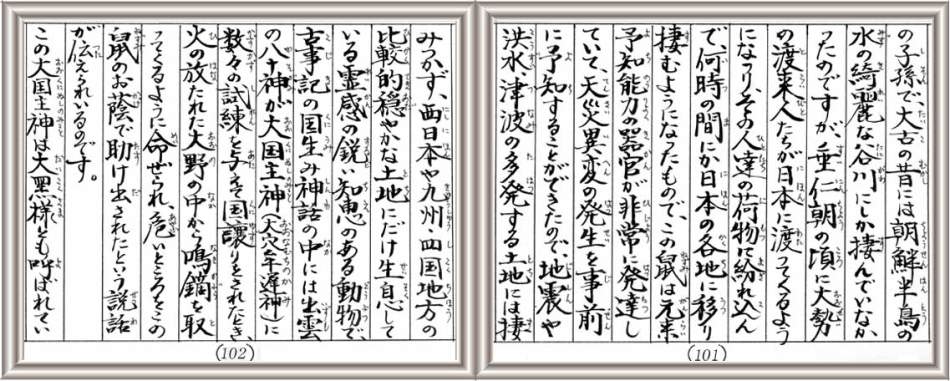 の子孫で、大古の昔には朝鮮半島の
水の綺麗な谷川にしか棲んでいなか
ったのですが、垂仁朝の頃に大勢
の渡来人たちが日本に渡ってくるよう
になり、その人達の荷物に紛れ込ん
で何時の間にか日本の各地に移り
棲むようになったもので、この鼠は元来
予知能力の器官が非常に発達し
ていて、天災異変の発生を事前
に予知することができたので、地震や
洪水、津波の多発する土地には棲
(101)
みつかず、西日本や九州・四国地方の
比較的穏やかな土地にだけ生息して
いる霊感の鋭い知恵のある動物で、
古事記の国生み神話の中には出雲
の八十神が大国主神(大穴牟遅神)に
数々の試練を与えて国譲りをされたとき、
火の放たれた大野の中から鳴鏑を取
ってくるように命ぜられ、危いところをこの
鼠のお蔭で助け出されたという説話
が伝えられいるのです。
この大国主神は大黒様とも呼ばれてい
(102)